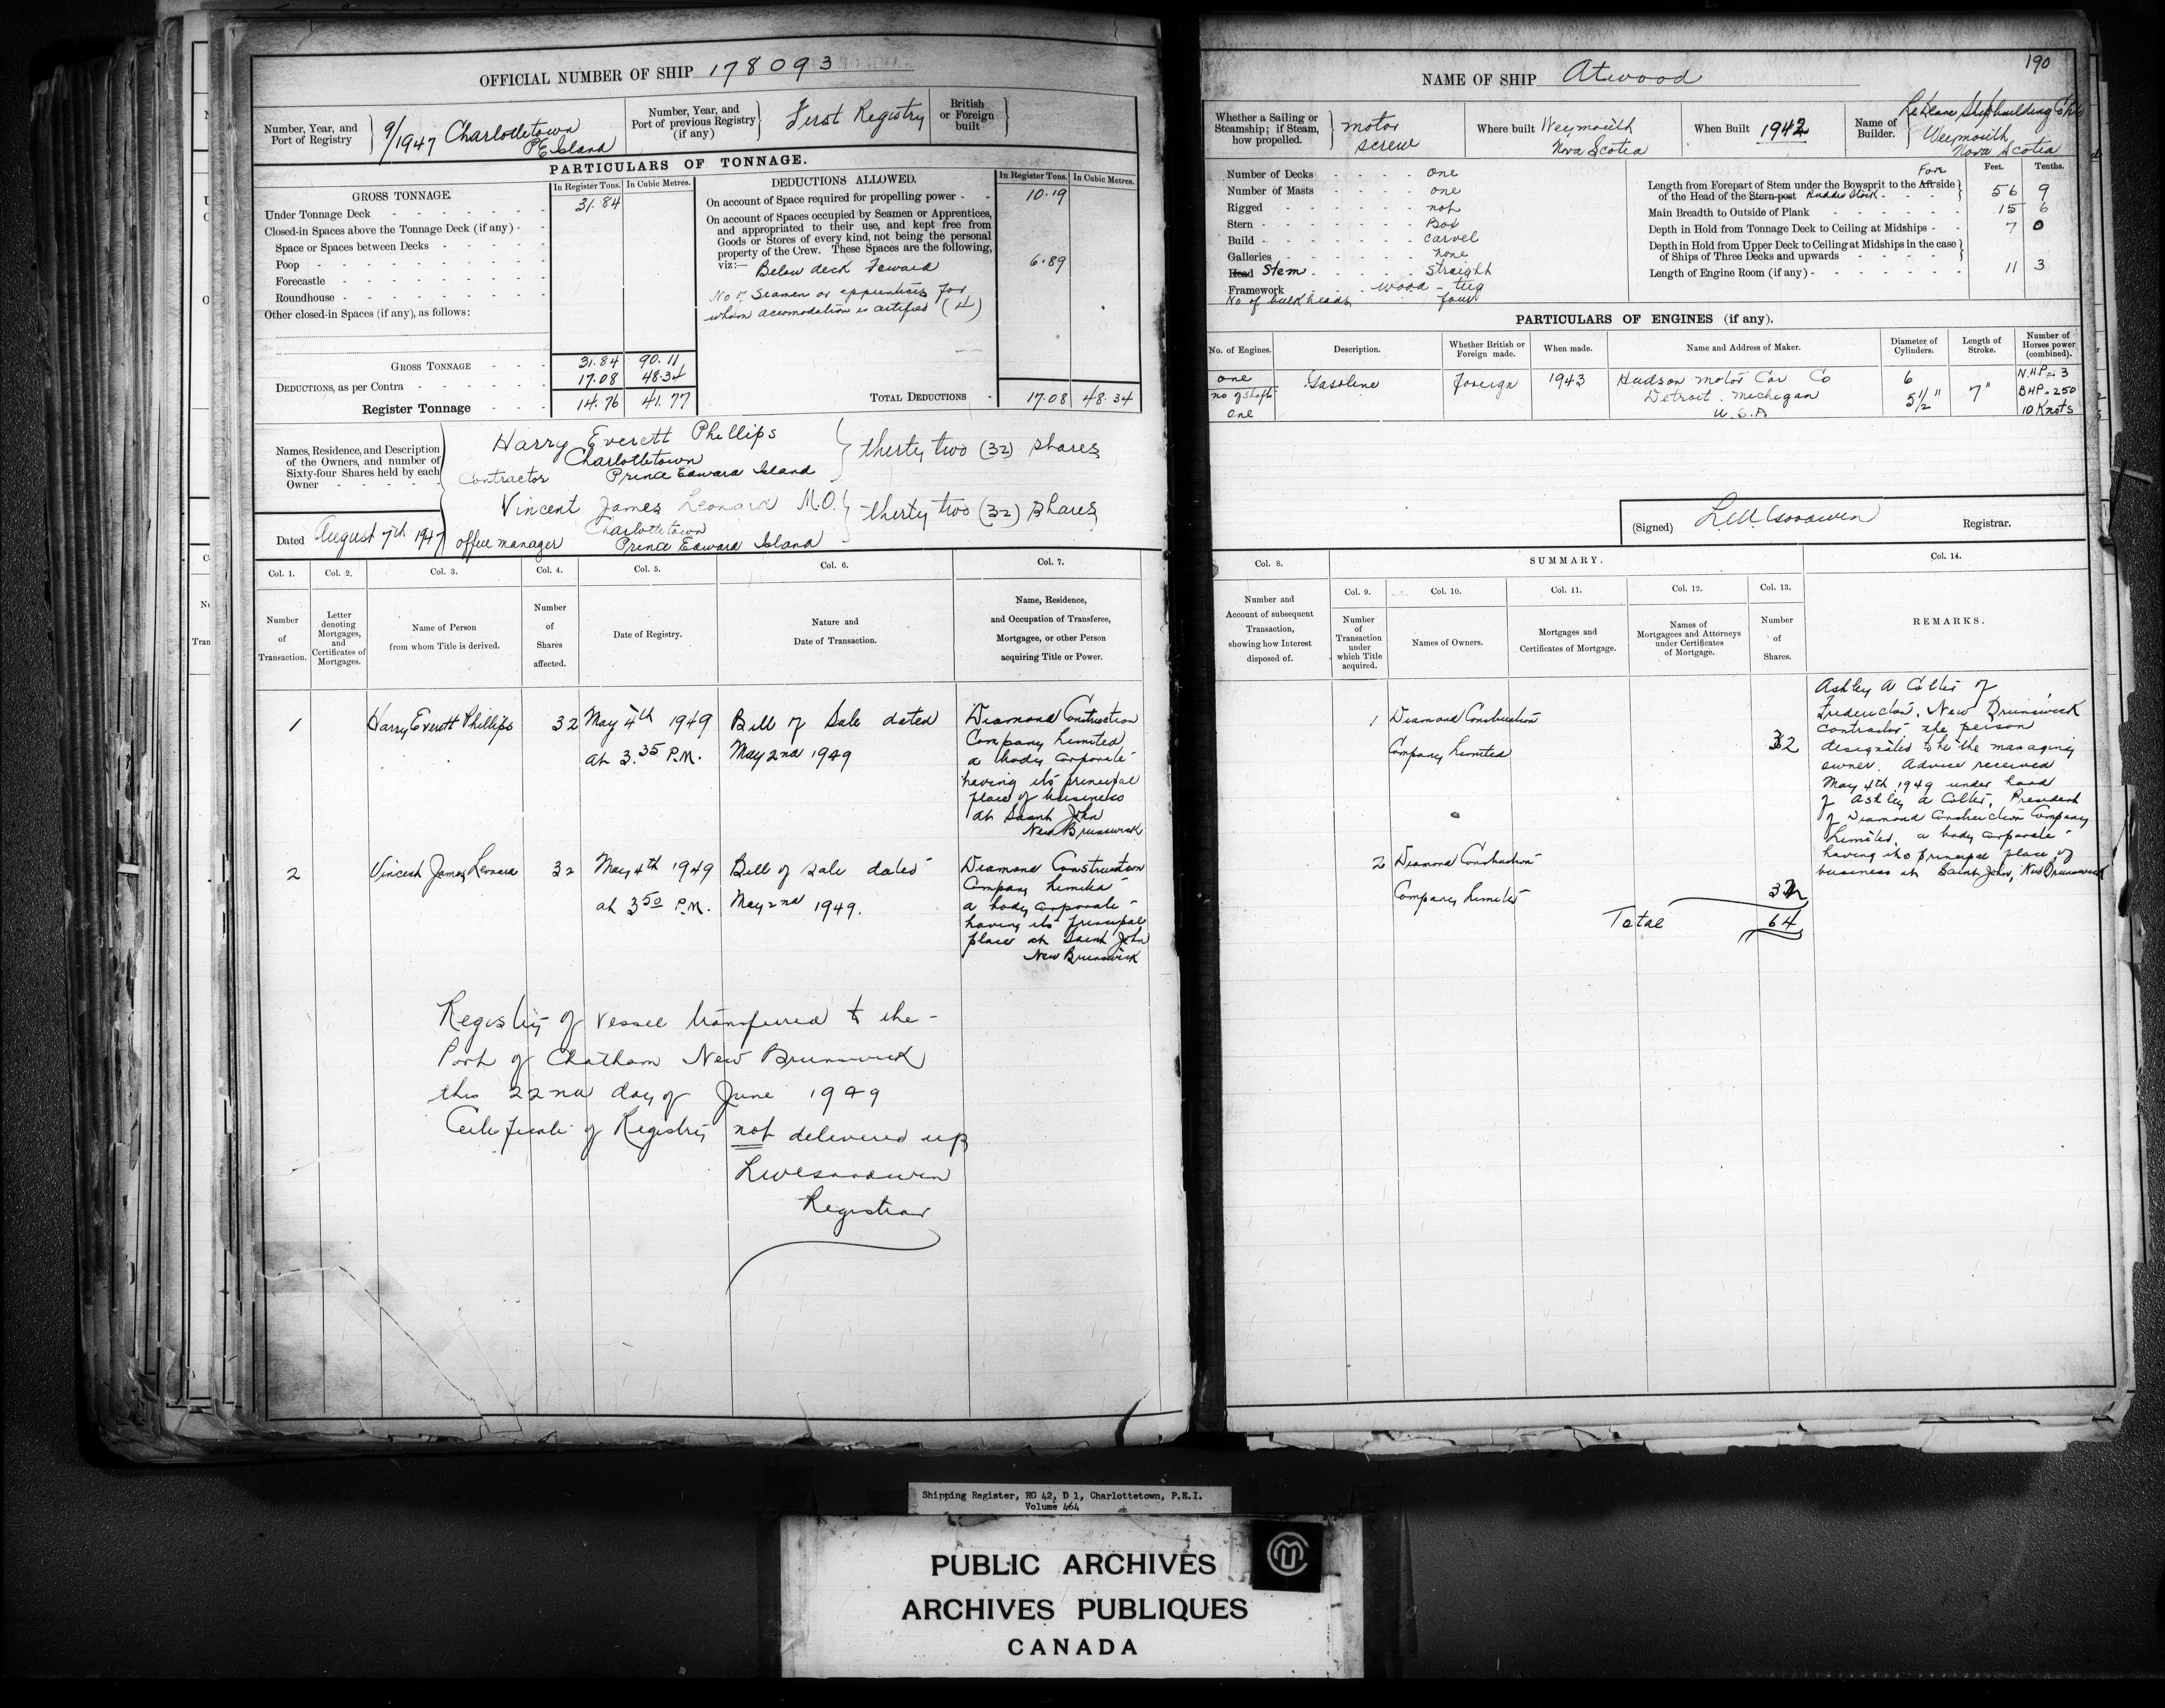 OFFICIAL NUMBER OF SHIP 178093
Number, Year, and Port of Registry
9/1947 Charlottetown
P E Island
Number, Year, and Port of previous Registry (if any)
First Registry
British or Foreign built
PARTICULARS OF TONNAGE.
GROSS TONNAGE.
In Register Tons. In Cubic Metres.
Under Tonnage Deck 31.84
Closed-in Spaces above the Tonnage Deck (if any)
Space or Spaces between Decks
Poop
Forecastle
Roundhouse
Other closed-in Spaces (if any), as follows:
GROSS TONNAGE 31.84 90.11
DEDUCTIONS, as per Contra 17.08 48.34
Register Tonnage 14.76 41.77
DEDUCTIONS ALLOWED.
In Register Tons. In Cubic Metres.
On account of Space required for propelling power 10.19
On account of Spaces occupied by Seamen or Apprentices,
and appropriated to their use, and kept free from
Goods or Stores of every kind, not being the personal
property of the Crew. These Spaces are the following,
viz:— Below deck Foward 6.89
No of Seamen or apprentices for
whom accomodation is certified (4)
TOTAL DEDUCTIONS 17.08 48.34
Names, Residence, and Description
of the Owners, and number of
Sixty-four Shares held by each
Owner
Harry Everett Phillips
Charlottetown
Contractor Prince Edward Island
thirty two (32) shares
Vincent James Leonard M.O.
Charlottetown
office manager Prince Edward Island
thirty two (32) shares
Dated August 7th 1947
Col. 1. Col. 2. Col. 3. Col. 4. Col. 5. Col. 6. Col. 7.
Number of Transaction.
Letter denoting Mortgages, and Certificates of Mortgages.
Name of Person from whom Title is derived.
Number of Shares affected.
Date of Registry.
Nature and Date of Transaction.
Name, Residence, and Occupation of Transferee, Mortgagee, or other Person acquiring Title or Power.
1 Harry Everett Phillips 32 May 4th 1949 Bill of Sale dated Diamond Construction
at 3.35 P.M. May 2nd 1949 Company Limited
a body corporate
having its principal
place of business
at Saint John
New Brunswick
2 Vincent James Leonard 32 May 4th 1949 Bill of Sale dated Diamond Construction
at 3.50 P.M. May 2nd 1949. Company Limited
a body corporate
having its principal
place at Saint John
New Brunswick
Registry of vessel transferred to the
Port of Chatham New Brunswick
this 22nd day of June 1949
Certificate of Registry not delivered up
Registrar
190
NAME OF SHIP Atwood
Whether a Sailing or Steamship; if Steam, how propelled.
motor
screw
Where built Weymouth
Nova Scotia
When Built 1942
Name of Builder.
Shipbuilding
Weymouth
Nova Scotia
Number of Decks one
Number of Masts one
Rigged not
Stern Box
Build carvel
Galleries none
Head Stem straight
Framework wood - tug
No of bulkheads four
Feet. Tenths.
Fore
Length from Forepart of Stem under the Bowsprit to the Aft side
of the Head of the Stern-post Rudder Stock 56 9
Main Breadth to Outside of Plank 15 6
Depth in Hold from Tonnage Deck to Ceiling at Midships 7 0
Depth in Hold from Upper Deck to Ceiling at Midships in the case
of Ships of Three Decks and upwards
Length of Engine Room (if any) 11 3
PARTICULARS OF ENGINES (if any).
No. of Engines. Description. Whether British or Foreign made. When made. Name and Address of Maker. Diameter of Cylinders. Length of Stroke. Number of Horses power (combined).
one Gasoline foreign 1943 Hudson Motor Car Co 6 N.H.P.=3
no of shafts Detroit. Michegan 5 1/2" 7" BHP=250
one U.S.A 10 Knots
(Signed) Registrar.
Col. 8. SUMMARY. Col. 14.
Number and Account of subsequent Transaction, showing how Interest disposed of.
Col. 9. Col. 10. Col. 11. Col. 12. Col. 13.
Number of Transaction under which Title acquired.
Names of Owners.
Mortgages and Certificates of Mortgage.
Names of Mortgagees and Attorneys under Certificates of Mortgage.
Number of Shares.
REMARKS.
1 Diamond Construction
Company Limited 32
2 Diamond Construction
Company Limited 32
Total 64
Ashley A Colter of
Fredericton, New Brunswick
contractor the person
designated to be the managing
owner. Advice received
May 4th 1949 under hand
of Ashley A Colter, President
of Diamond Construction Company
Limited, a body corporate
having its principal place of
business at Saint John, New Brunswick
Shipping Register, RG 42, D 1, Charlottetown, P.E.I.
Volume 464
PUBLIC ARCHIVES
ARCHIVES PUBLIQUES
CANADA